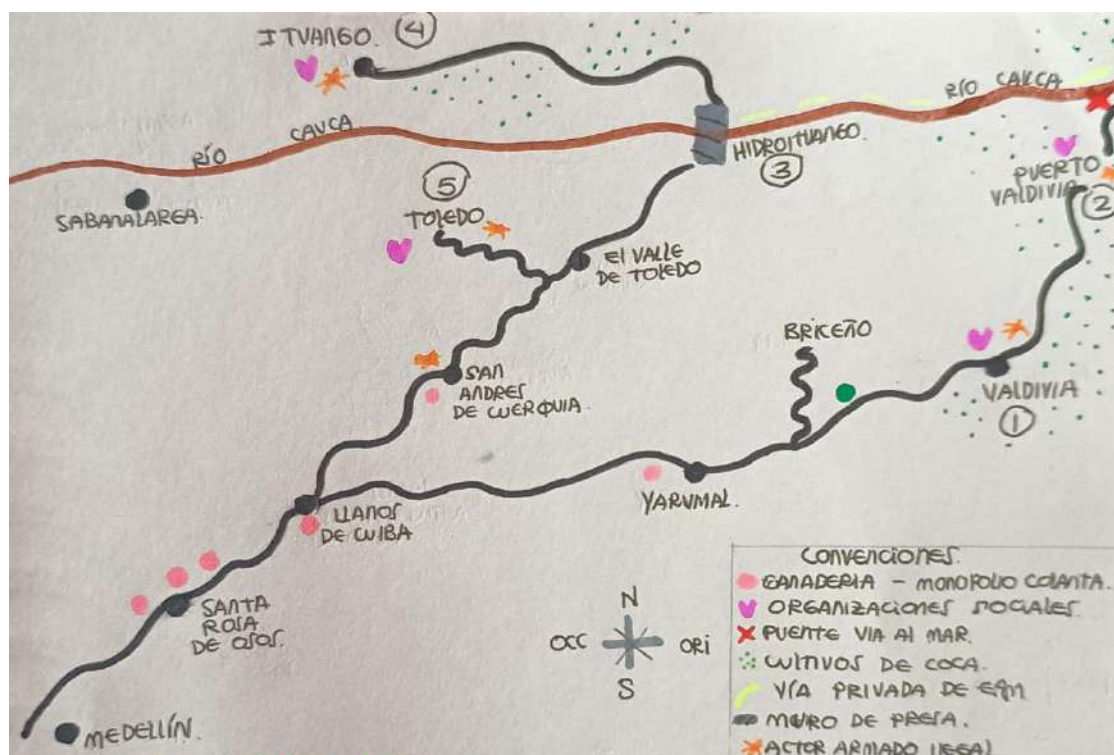 ITUANGO.
4
RÍO
CAUCA
RÍO CAUCA
HIDROITUANGO.
3
PUERTO
VALDIVIA
2
SABANALARGA.
5
TOLEDO
El VALLE
DE TOLEDO
BRICEÑO
SAN
ANDRES
DE CUERQUIA.
VALDIVIA
1
YARUMAL.
LLANOS
DE CUIBA
SANTA
ROSA
DE OSOS.
MEDELLÍN.
N
OCC
ORI
S
CONVENCIONES.
GANADERIA - MONOPOLIO COLANTA.
ORGANIZACIONES SOCIALES.
PUENTE VIA AL MAR.
CULTIVOS DE COCA.
VÍA PRIVADA DE EPM
MURO DE PRESA.
ACTOR ARMADO